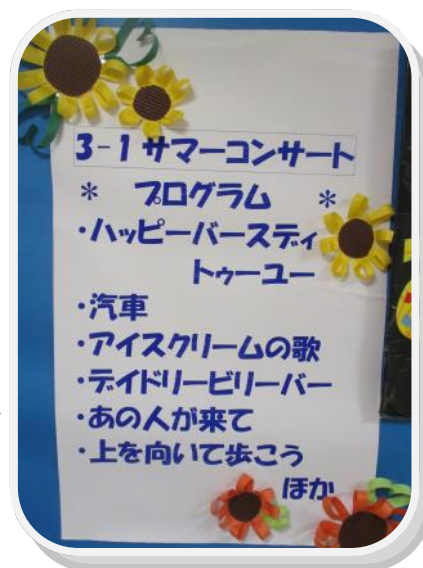 3-1サマーコンサート
* プログラム *
・ハッピーバースディ
トゥーユー
・汽車
・アイスクリームの歌
・デイドリービリーバー
・あの人が来て
・上を向いて歩こう
ほか